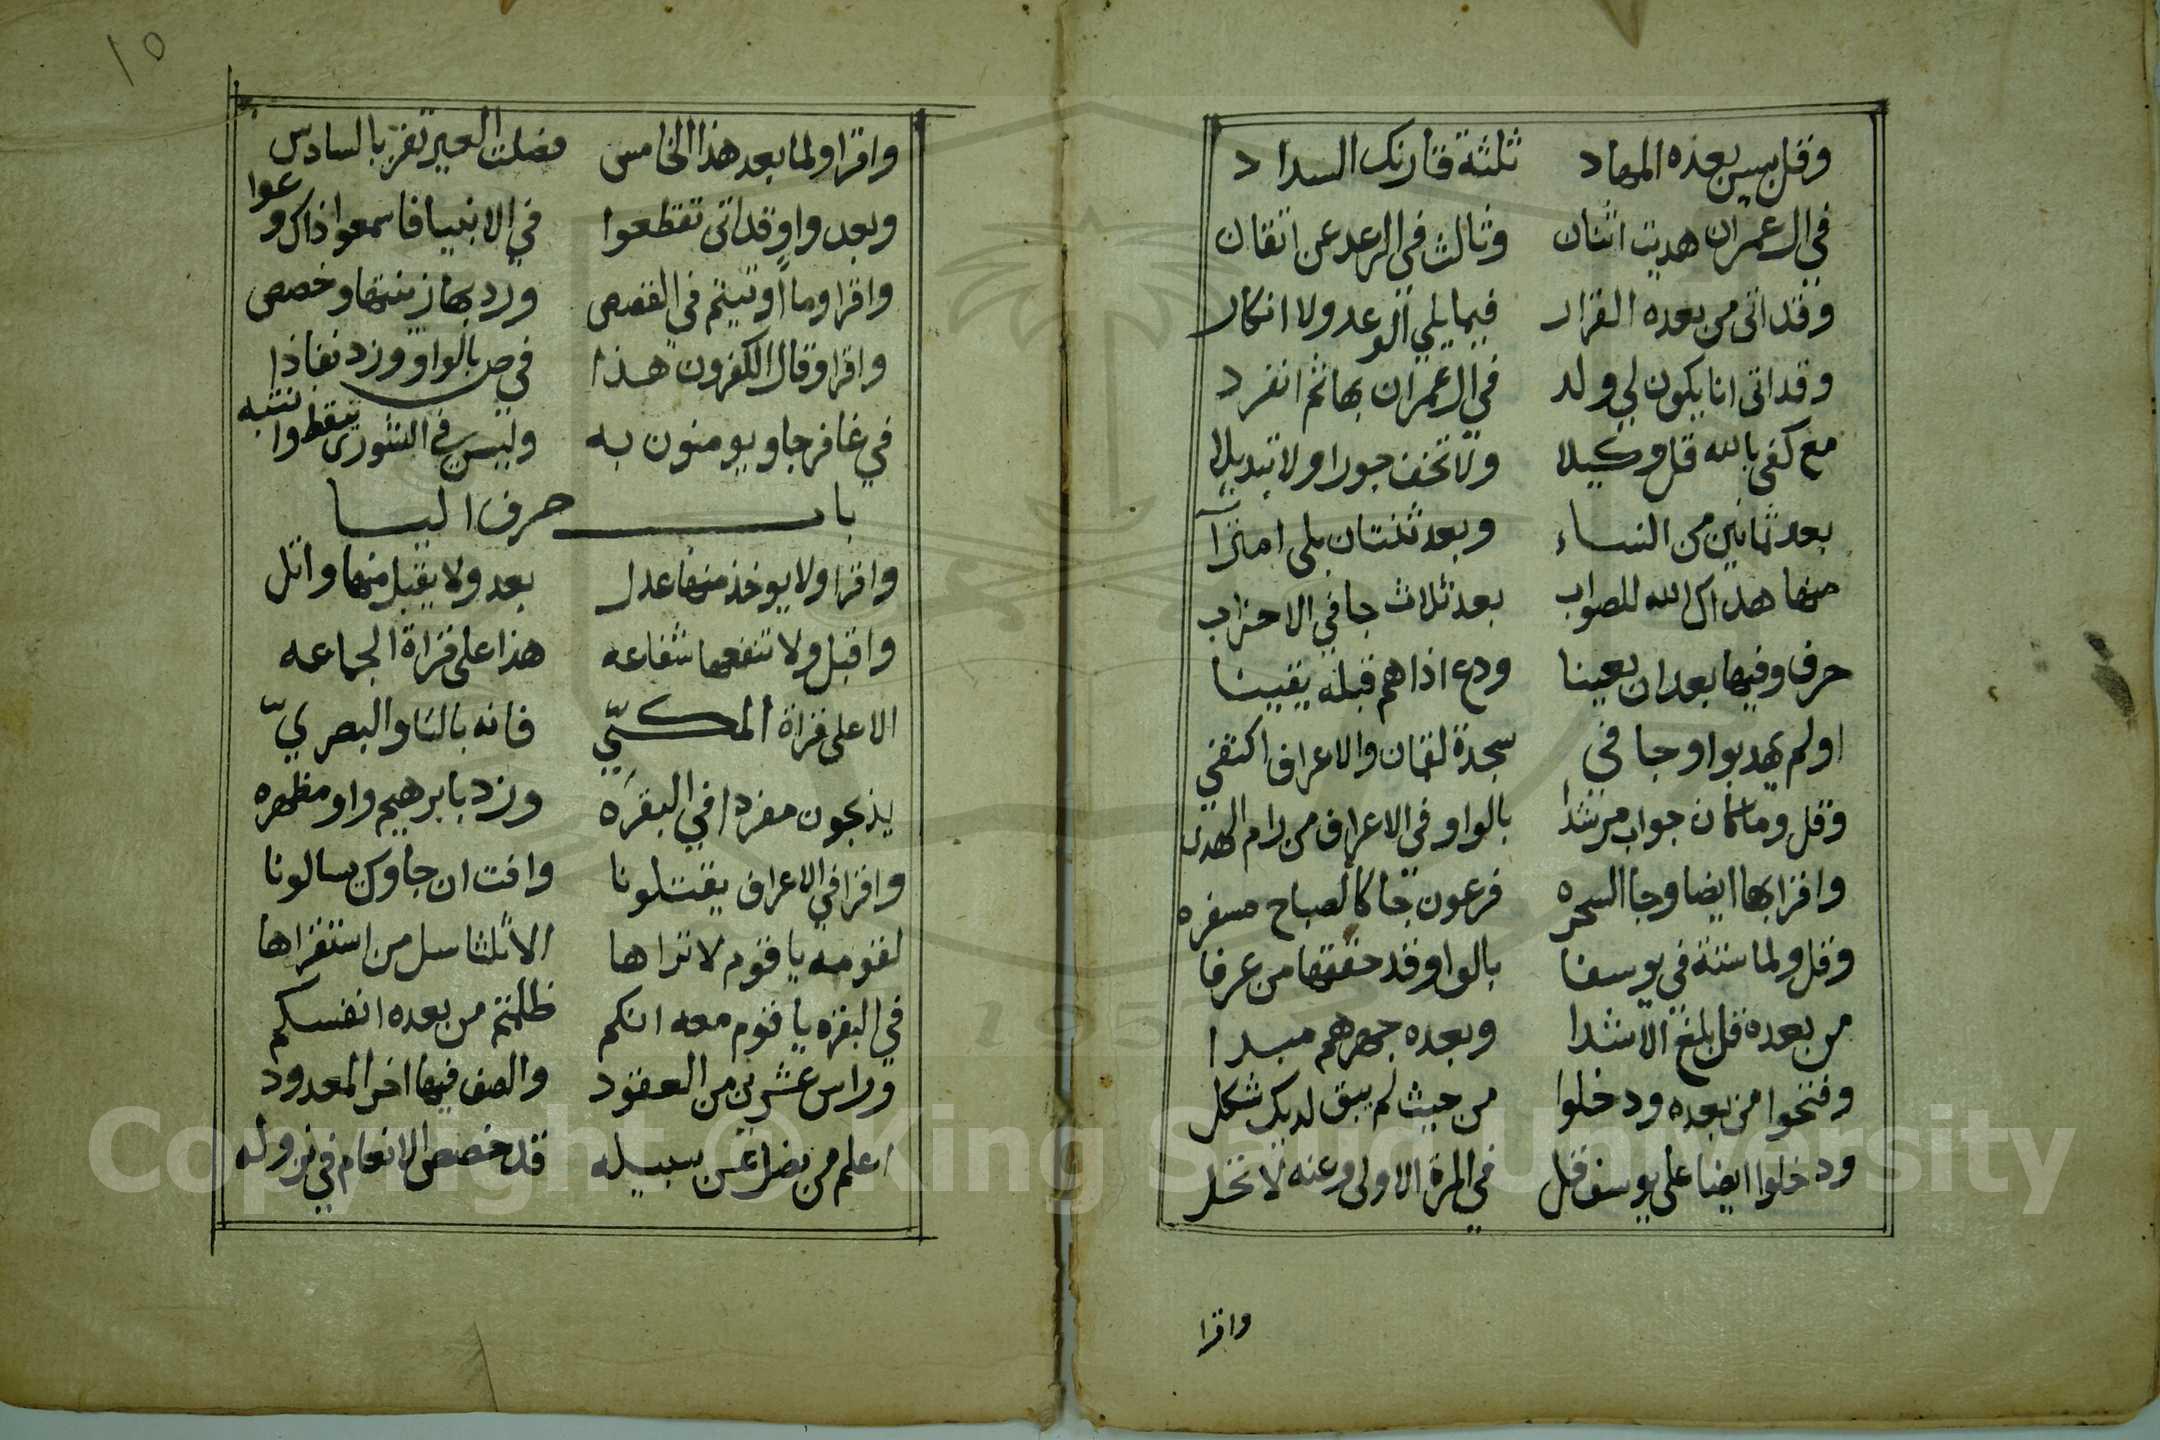 وقل بيس بعده المهاد ثلثة قارنك السداد
في ال عمران هديت اثنان وثالث في الرعد عن اتقان
وقد اتى من بعده القرار فيما يلي الرعد ولا انكار
وقد اتى انا يكون لي ولد في ال عمران بها ثم انفرد
مع كفى بالله قل وكيلا ولا تخف جورا ولا تبديلا
بعد ثمانين من النساء وبعد ثنتان بلى امترآ
منها هداك الله للصواب بعد ثلاث جا في الاحزاب
حرف وفيها بعد ان يعينا ودع اذاهم قبله يقينا
اولم يهدبوا وجا في سجدة لقمان والاعراف اكتفي
وقل وما كان جواب مرشدا بالواو في الاعراف من رام الهدى
واقرا بها ايضا وجا السحره فرعون جا كالصباح مسفره
وقل ولما ستة في يوسفا بالواو قد حققها من عرفا
من بعده قل بلغ الاشدا وبعده جهزهم مبدا
وفتحوا من بعده ودخلوا من حيث لم يبق لديك شكل
ودخلوا ايضا على يوسف قل في المرة الاولى وعنه لا تخل
واقرا
١٥
واقرا ولما بعد هذا الخامس فصلت العير تفز بالسادس
وبعد واو قد اتى تقطعوا في الانبيا فاسمعوا ذاك وعوا
واقرا وما اوتيتم في القصص وزد بها زينتها وخصص
واقرا وقال الكفرون هذا في ص بالواو وزد نفاذا
في غافر جا ويومنون به وليس في الشورى سقط وانتبه
باب حرف اليا
واقرا ولا يوخذ منها عدل بعد ولا يقبل منها واتل
واقبل ولا تنفعها شفاعه هذا على قراة الجماعه
الا على قراة المكيّ فانه بالتا والبصريّ
يذبحون مفردا في البقره وزد بابرهيم واو مظهره
واقرا في الاعراف يقتلونا وافت ان جاوك سالونا
لقومه يا قوم لا تراها الا ثلثا سل من استقراها
في البقره يا قوم معه انكم ظلمتم من بعده انفسكم
وراس عشرين من العقود والصف فيها اخر المعدود
اعلم من يضل عن سبيله قد خصص الانعام في نزوله